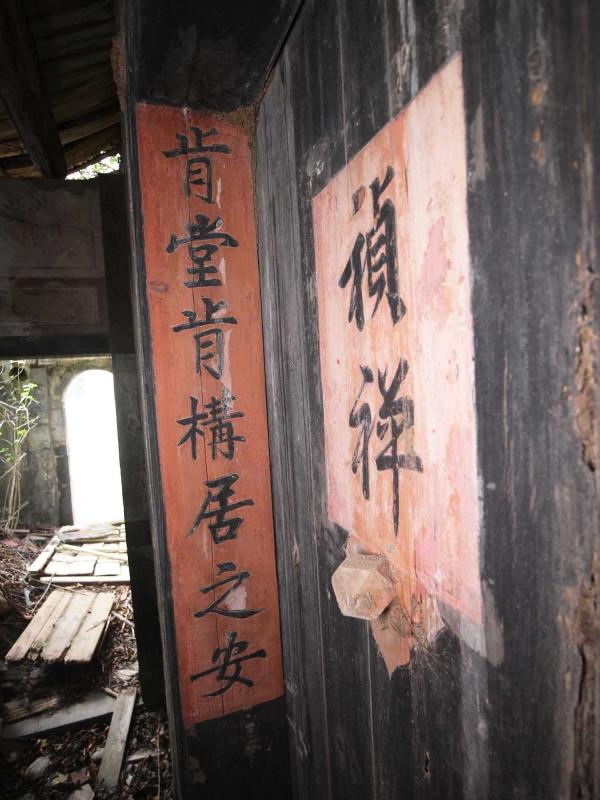 肯堂肯構居之安
禎祥